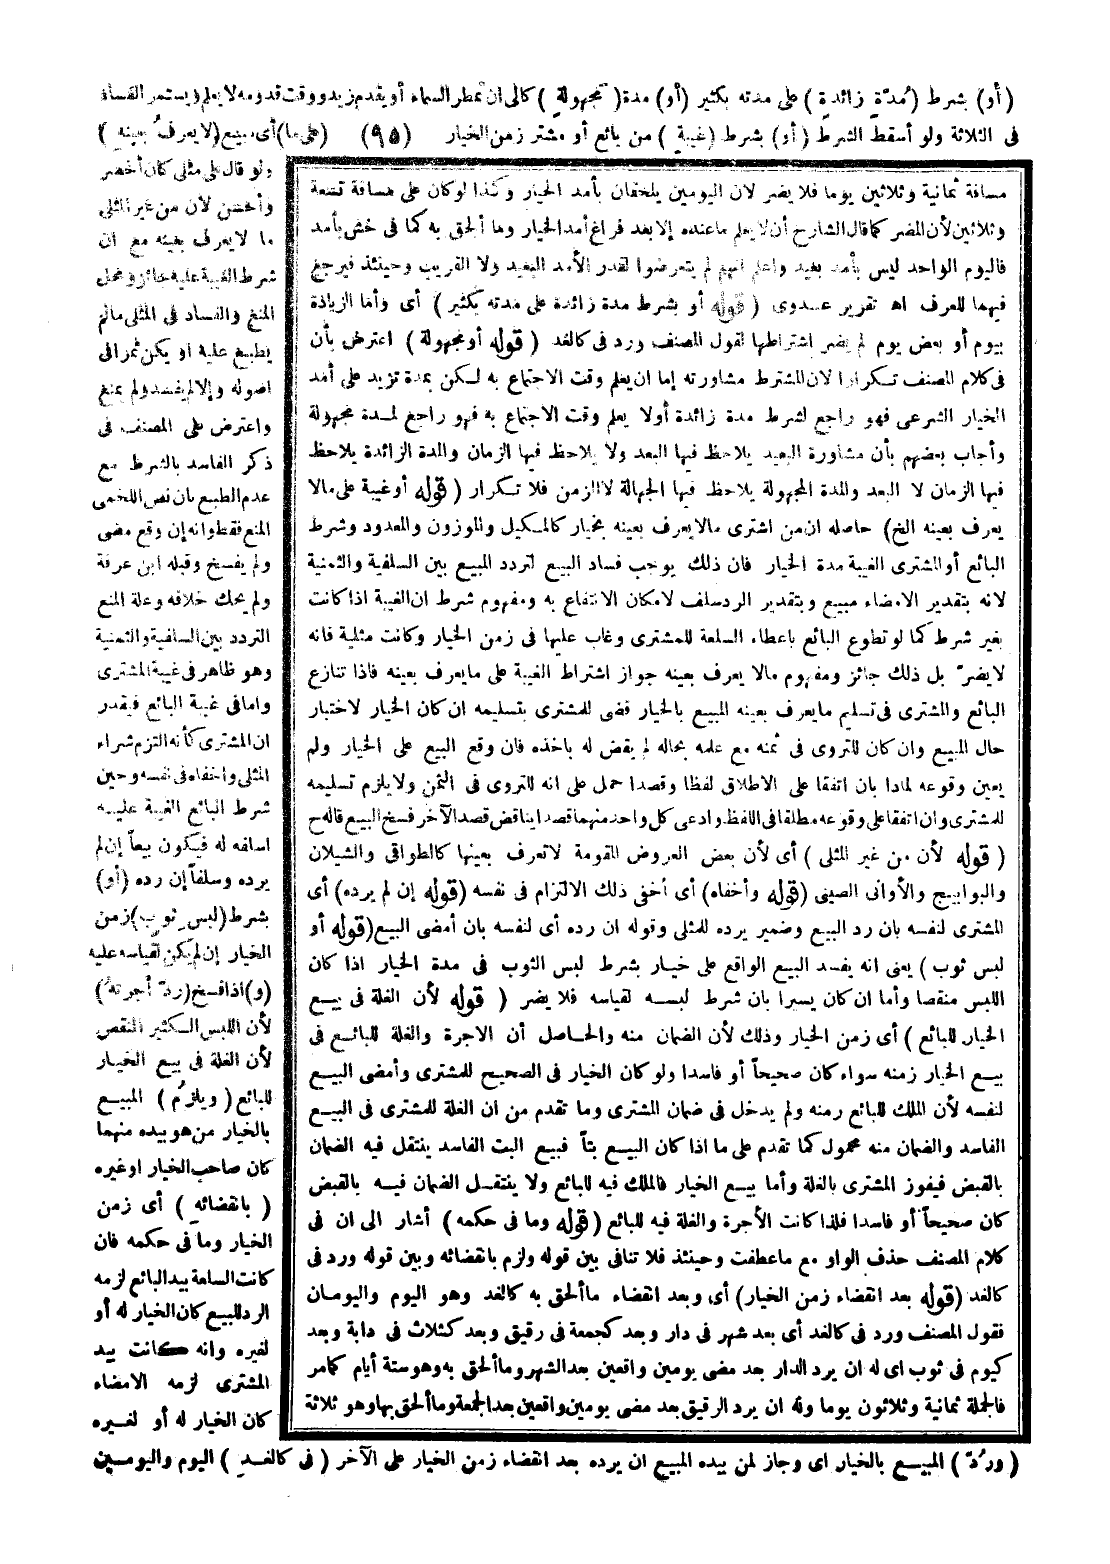 (أو) بشرط (مُدّةٍ زائدةٍ) على مدته بكثير (أو) مدة (مجهولةٍ) كالى ان تمطر السماء أو يقدم زيد ووقت قدومه لا يعلم (ويستمر الفساد
فى الثلاثة ولو أسقط الشرط (أو) بشرط (غيبةٍ) من بائع أو مشتر زمن الخيار (٩٥) (على ما) أى مبيع (لا يعرفُ بعينهِ)
ولو قال على مثلى كان أخصر
وأحسن لأن من غير المثلى
ما لا يعرف بعينه مع ان
شرط الغيبة عليه جائز ومحل
المنع والفساد فى المثلى مالم
يطبع عليه او يكن ثمرا فى
اصوله وإلا لم يفسد ولم يمنع
واعترض على المصنف فى
ذكر الفاسد بالشرط مع
عدم الطبع بان نص اللخمى
المنع فقط وانه إن وقع مضى
ولم يفسخ وقبله ابن عرفة
ولم يحك خلافه وعلة المنع
التردد بين السلفية والثمنية
وهو ظاهر فى غيبة المشترى
واما فى غيبة البائع فيقدر
ان المشترى كأنه التزم شراء
المثلى واخفاه فى نفسه وحين
شرط البائع الغيبة عليه
اسلفه له فيكون بيعاً إن لم
يرده وسلفاً إن رده (أو)
بشرط (لبس ثوبٍ) زمن
الخيار إن لم يكن لقياسه عليه
(و) اذا فسخ (ردّ أجرتهُ)
لأن اللبس الكثير النقص
لأن الغلة فى بيع الخيار
للبائع (ويلزمُ) المبيع
بالخيار من هو بيده منهما
كان صاحب الخيار او غيره
(بانقضائهِ) أى زمن
الخيار وما فى حكمه فان
كانت السلعة بيد البائع لزمه
الرد للبيع كان الخيار له أو
لغيره وانه كانت بيد
المشترى لزمه الامضاء
كان الخيار له أو لغيره
(ورُدّ) المبيع بالخيار اى وجاز لمن بيده المبيع ان يرده بعد انقضاء زمن الخيار على الآخر (فى كالغدِ) اليوم واليومين
مسافة ثمانية وثلاثين يوما فلا يضر لان اليومين يلحقان بأمد الخيار وكذا لو كان على مسافة تسعة
وثلاثين لأن المضر كما قال الشارح أن لا يعلم ما عنده إلا بعد فراغ أمد الخيار وما ألحق به كما فى خش بأمد
فاليوم الواحد ليس بأمد بعيد واعلم انهم لم يتعرضوا لقدر الأمد البعيد ولا القريب وحينئذ فيرجع
فيهما للعرف اه تقرير عدوى (قوله أو بشرط مدة زائدة على مدته بكثير) أى وأما الزيادة
بيوم أو بعض يوم لم يضر اشتراطها لقول المصنف ورد فى كالغد (قوله أو مجهولة) اعترض بأن
فى كلام المصنف تكرارا لان المشترط مشاورته إما ان يعلم وقت الاجتماع به لكن بمدة تزيد على أمد
الخيار الشرعى فهو راجع لشرط مدة زائدة أولا يعلم وقت الاجتماع به فهو راجع لمدة مجهولة
وأجاب بعضهم بأن مشاورة البعيد يلاحظ فيها البعد ولا يلاحظ فيها الزمان والمدة الزائدة يلاحظ
فيها الزمان لا البعد والمدة المجهولة يلاحظ فيها الجهالة لا الزمن فلا تكرار (قوله أو غيبة على مالا
يعرف بعينه الخ) حاصله ان من اشترى مالا يعرف بعينه بخيار كالمكيل والموزون والمعدود وشرط
البائع أو المشترى الغيبة مدة الخيار فان ذلك يوجب فساد البيع لتردد المبيع بين السلفية والثمنية
لانه بتقدير الامضاء مبيع وبتقدير الرد سلف لامكان الانتفاع به ومفهوم شرط ان الغيبة اذا كانت
بغير شرط كما لو تطوع البائع باعطاء السلعة للمشترى وغاب عليها فى زمن الخيار وكانت مثلية فانه
لا يضرّ بل ذلك جائز ومفهوم مالا يعرف بعينه جواز اشتراط الغيبة على ما يعرف بعينه فاذا تنازع
البائع والمشترى فى تسليم ما يعرف بعينه المبيع بالخيار قضى للمشترى بتسليمه ان كان الخيار لاختبار
حال المبيع وان كان للتروى فى ثمنه مع علمه بحاله لم يقض له باخذه فان وقع البيع على الخيار ولم
يعين وقوعه لماذا بان اتفقا على الاطلاق لفظا وقصدا حمل على انه للتروى فى الثمن ولا يلزم تسليمه
للمشترى وان اتفقا على وقوعه مطلقا فى اللفظ وادعى كل واحد منهما قصدا يناقض قصد الآخر فسخ البيع قاله ح
(قوله لأن من غير المثلى) أى لأن بعض العروض المقومة لا تعرف بعينها كالطواقى والشيلان
والبوابيج والأوانى الصينى (قوله وأخفاه) أى أخفى ذلك الالتزام فى نفسه (قوله إن لم يرده) أى
المشترى لنفسه بان رد البيع وضمير يرده للمثلى وقوله ان رده أى لنفسه بان أمضى البيع (قوله أو
لبس ثوب) يعنى انه يفسد البيع الواقع على خيار بشرط لبس الثوب فى مدة الخيار اذا كان
اللبس منقصا وأما ان كان يسيرا بان شرط لبسه لقياسه فلا يضر (قوله لأن الغلة فى بيع
الخيار للبائع) أى زمن الخيار وذلك لأن الضمان منه والحاصل أن الاجرة والغلة للبائع فى
بيع الخيار زمنه سواء كان صحيحاً أو فاسدا ولو كان الخيار فى الصحيح للمشترى وأمضى البيع
لنفسه لأن الملك للبائع زمنه ولم يدخل فى ضمان المشترى وما تقدم من ان الغلة للمشترى فى البيع
الفاسد والضمان منه محمول كما تقدم على ما اذا كان البيع بتاً فبيع البت الفاسد ينتقل فيه الضمان
بالقبض فيفوز المشترى بالغلة وأما بيع الخيار فالملك فيه للبائع ولا ينتقل الضمان فيه بالقبض
كان صحيحاً أو فاسدا فلذا كانت الأجرة والغلة فيه للبائع (قوله وما فى حكمه) أشار الى ان فى
كلام المصنف حذف الواو مع ما عطفت وحينئذ فلا تنافى بين قوله ولزم بانقضائه وبين قوله ورد فى
كالغد (قوله بعد انقضاء زمن الخيار) أى وبعد انقضاء ما ألحق به كالغد وهو اليوم واليومان
فقول المصنف ورد فى كالغد أى بعد شهر فى دار وبعد كجمعة فى رقيق وبعد كثلاث فى دابة وبعد
كيوم فى ثوب اى له ان يرد الدار بعد مضى يومين واقعين بعد الشهر وما ألحق به وهو ستة أيام كما مر
فالجملة ثمانية وثلاثون يوما وله ان يرد الرقيق بعد مضى يومين واقعين بعد الجمعة وما ألحق بها وهو ثلاثة